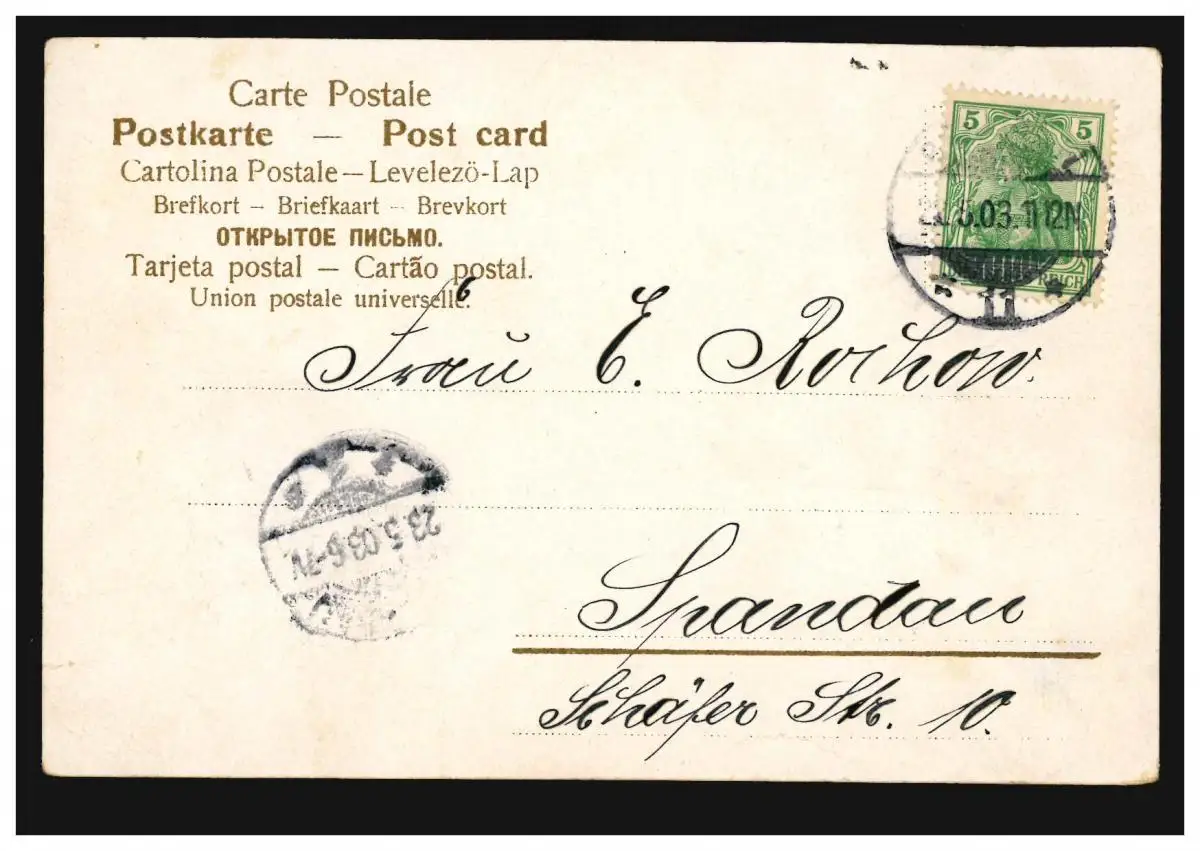 Carte Postale
Postkarte — Post card
Cartolina Postale — Levelezö-Lap
Brefkort – Briefkaart – Brevkort
ОТКРЫТОЕ ПИСЬМО.
Tarjeta postal — Cartão postal.
Union postale universelle.
5 5
.03. 11 12N
REICH
11 *
Frau E. Rochow.
23.5.03.6-7V
Spandau
Schäfer Str. 10.